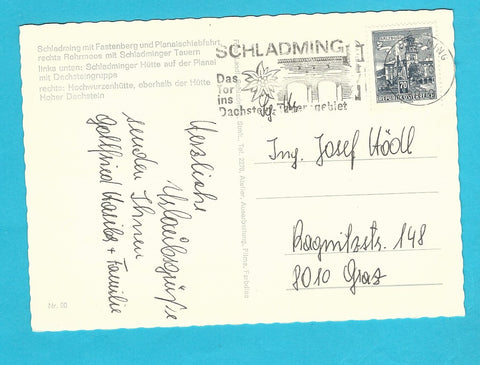 Schladming mit Fastenberg und Planaischlebfahrt
rechts Rohrmoos mit Schladminger Tauern
links unten: Schladminger Hütte auf der Planai
mit Dachsteingruppe
rechts: Hochwurzenhütte, oberhalb der Hütte
Hoher Dachstein
SCHLADMING
Das
Tor
ins
Dachstein-Tauerngebiet
70
REPUBLIK ÖSTERREICH
Herzliche
Urlaubsgrüße
senden Ihnen
Gottfried + Familie
Ing. Josef Hödl
Ragnitzstr. 148
8010 Graz
Nr. 20